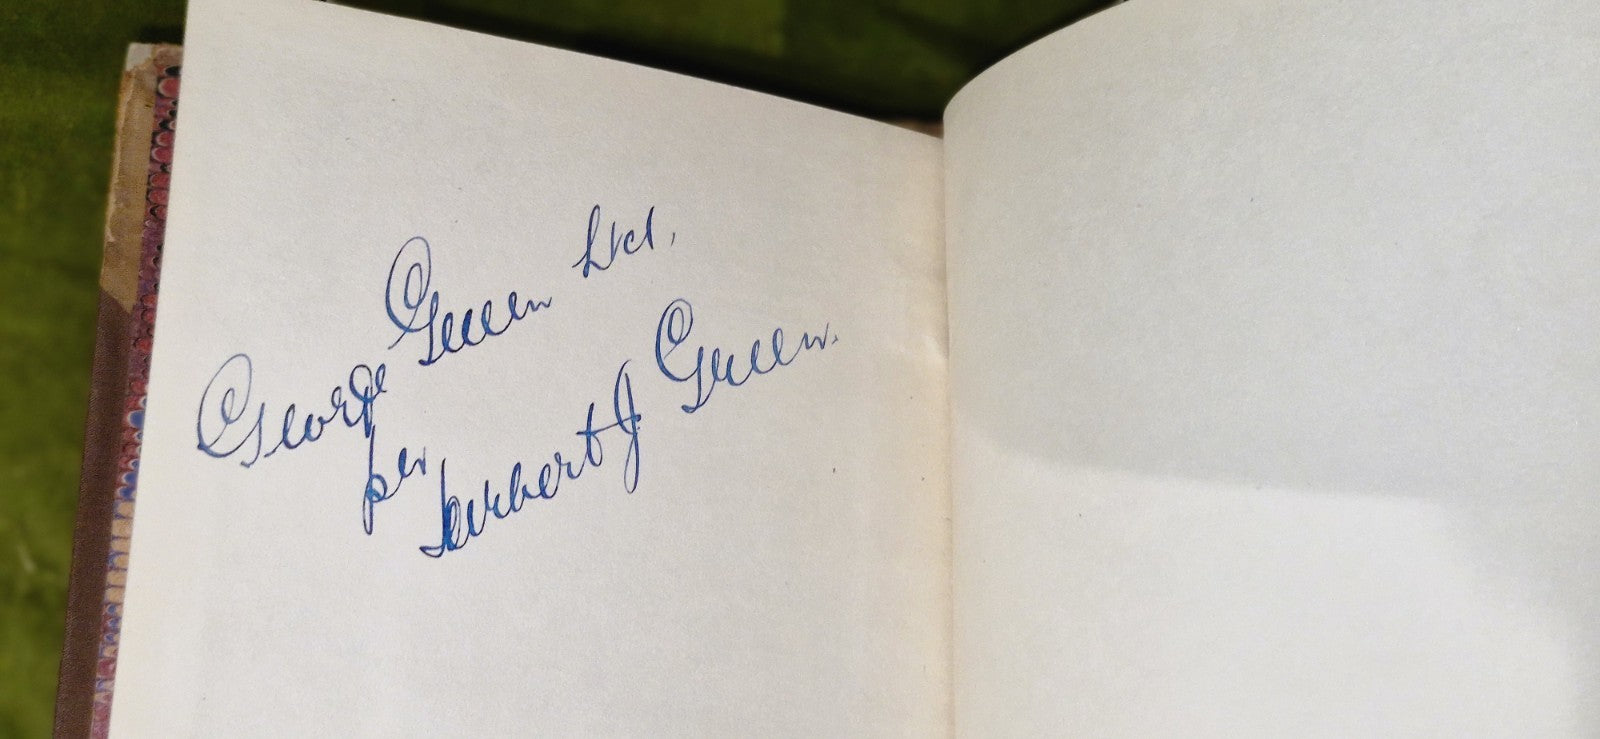 George Green Ltd.
per
Herbert J Green.